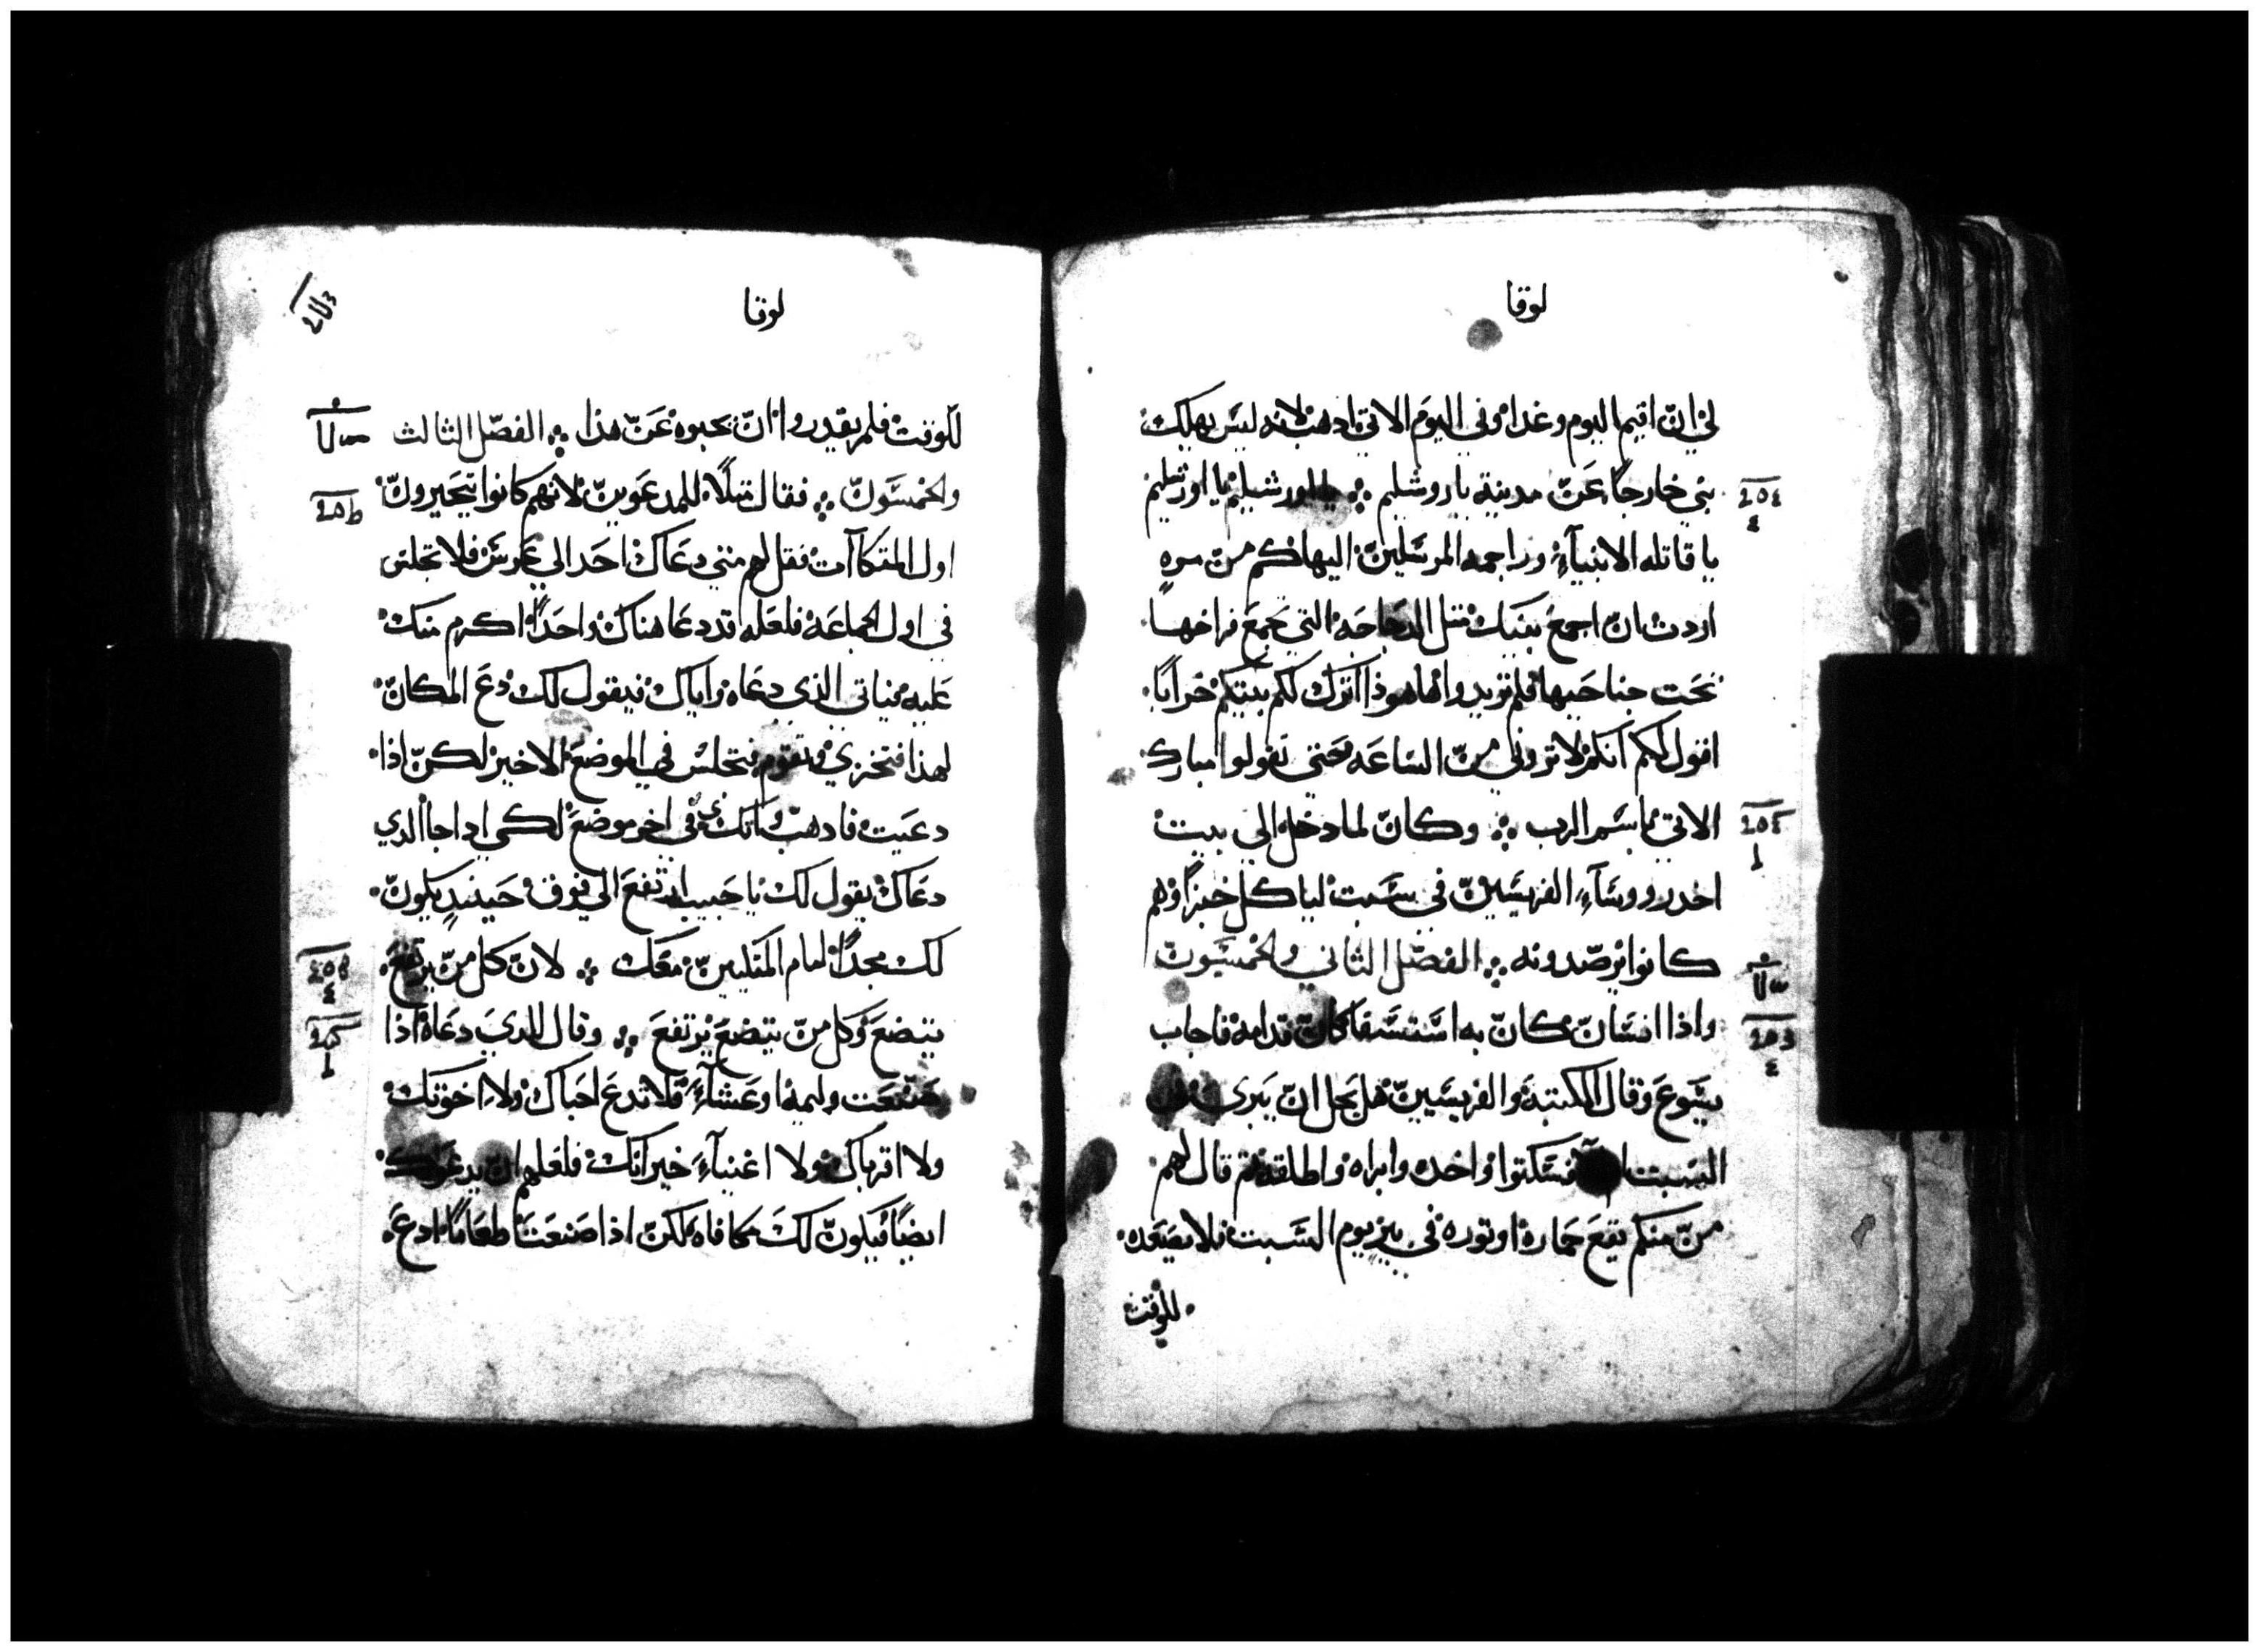 لوقا
لي ان اقيم اليوم وغدا وفي اليوم الاتي اذهب لانه ليس يهلك
نبي خارجا عن مدينة ياروشليم ⁘ يااورشليم يا اورشليم
يا قاتله الانبيآء وراجمه المرسلين اليها كم من مره
اردت ان اجمع بنيك متل الدجاجه التي تجمع فراخها
تحت جناحيها فلم تريدوا هاهوذا اترك لكم بيتكم خرابا
اقول لكم انكم لا تروني من الساعه حتي تقولوا مبارك
الاتي باسم الرب ⁘ وكان لما دخل الي بيت
احد روسآء الفريسين في سبت لياكل خبزا وهم
كانوا يرصدونه ⁘ الفصل الثاني والخمسون
واذا انسان كان به استسقا كان قدامه فاجاب
يسوع وقال للكتبه والفريسين هل يحل ان يبرى في
السبت ام لا فسكتوا واخده وابراه واطلقه تم قال لهم
من منكم تقع حماره او توره في بير يوم السبت فلا يصعده
للوقت
لوقا
للوقت فلم يقدروا ان يجبوه عن هذا ⁘ الفصل الثالث
والخمسون ⁘ فقال متلا للمدعوين لانهم كانوا يتخيرون
اول المتكاآت فقل لهم متي دعاك احد الي عرس فلا تجلس
في اول الجماعه فلعله قد دعا هناك واحدا اكرم منك
عليه فياتي الذي دعاه واياك فيقول لك دع المكان
لهذا فتخزي وتقوم فتجلس في الموضع الاخير لكن اذا
دعيت فادهب واتكي في اخر موضع لكي اداجا الدي
دعاك يقول لك يا حبيب ارتفع الي فوق حينيد يكون
لك مجدا امام المتكيين معك ⁘ لان كل من يرتفع
يتضع وكل من يتضع يرتفع ⁘ وقال للدي دعاه اذا
صنعت وليمه او عشآء فلا تدع احباك ولا اخوتك
ولا اقرباك ولا اغنيآء جيرانك فلعلهم ان يدعوك
ايضا فيكون لك مكافاه لكن اذا صنعت طعاما ادع